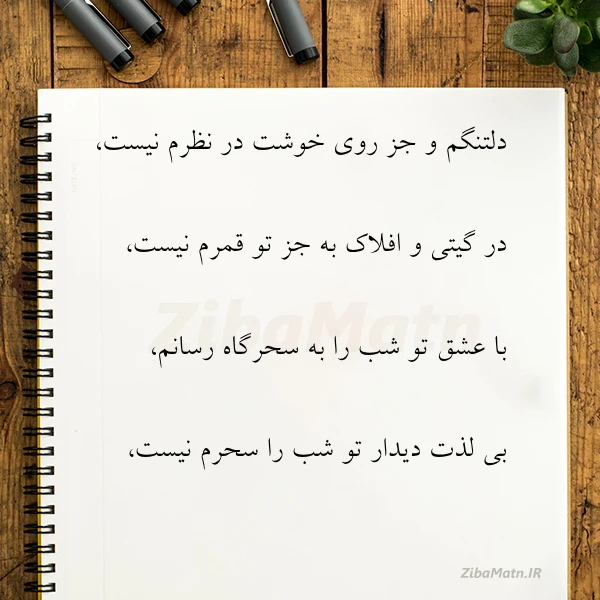 دلتنگم و جز روی خوشت در نظرم نیست،
در گیتی و افلاک به جز تو قمرم نیست،
ZibaMatn
با عشق تو شب را به سحرگاه رسانم،
بی لذت دیدار تو شب را سحرم نیست،
ZibaMatn.IR